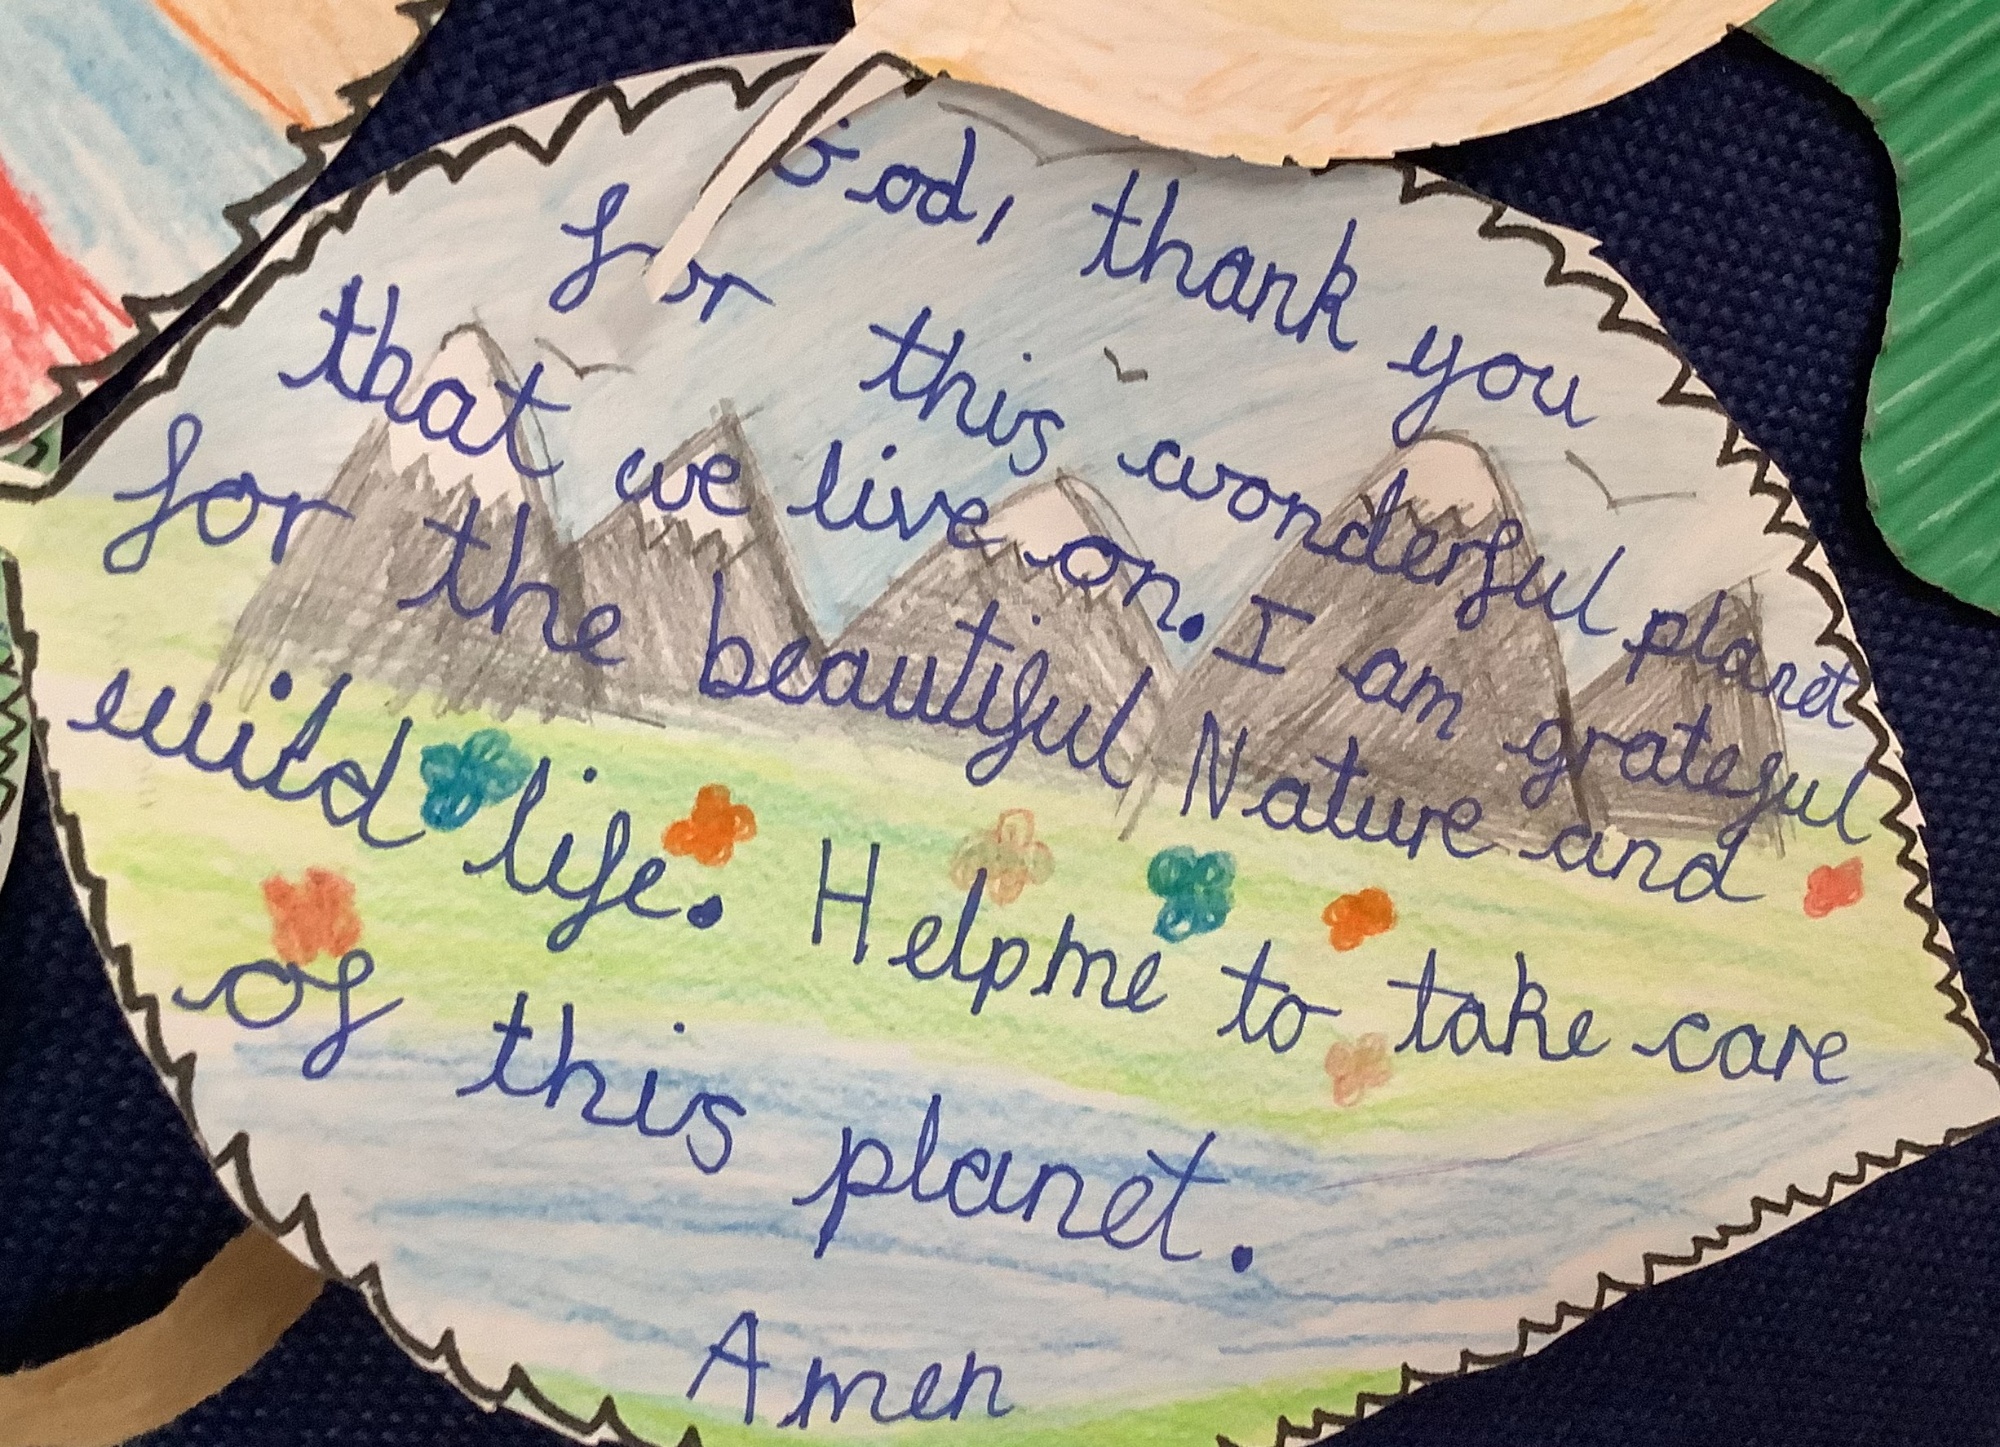 God, thank you
for this wonderful planet
that we live on. I am grateful
for the beautiful Nature and
wild life. Help me to take care
of this planet.
Amen